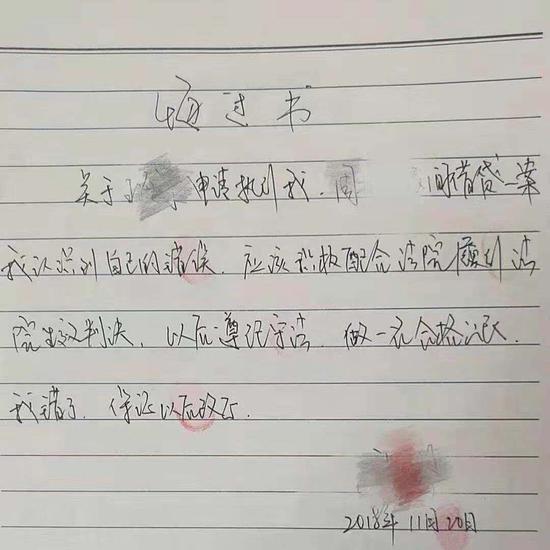 悔过书
关于 申请执行我、周 间借贷一案
我认识到自己的错误，应该积极配合法院履行法
院生效判决，以后遵纪守法，做一名合格公民．
我错了．保证以后改正．
2018年11月20日